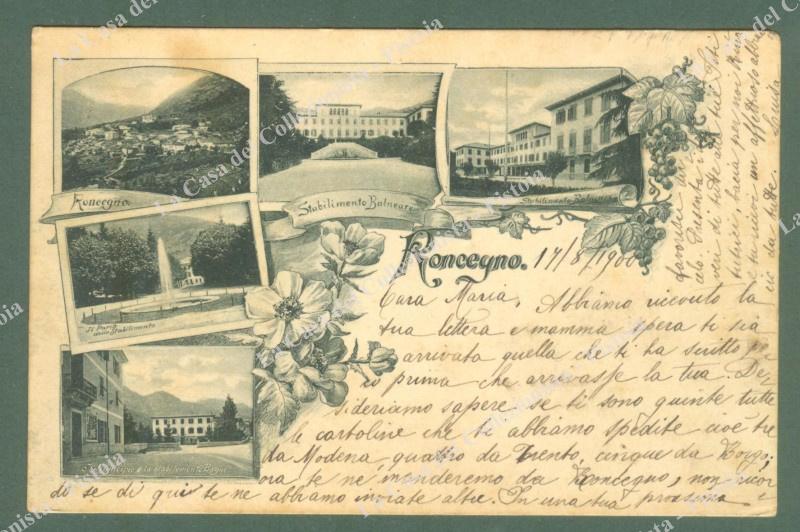 Roncegno.
Stabilimento Balneare
Stabilimento Balneare
Il Parco
dello Stabilimento
e lo stabilimento Bagni
Roncegno. 17/8/1900
Cara Maria, Abbiamo ricevuto la
tua lettera e mamma spera ti sia
arrivata quella che ti ha scritto po-
co prima che arrivasse la tua. De-
sideriamo sapere se ti sono giunte tutte
le cartoline che ti abbiamo spedite cioè tre
da Modena quattro da Trento, cinque da Borgo;
ora te ne manderemo da Roncegno, non ricor-
di se di qui te ne abbiamo inviate altre. In una tua prossima
favorisci
Presenta i
veri di tutte alle tue
bacia per noi
e un affettuoso
da tutte. Luisa
La Casa del Collezionista - Pistoia